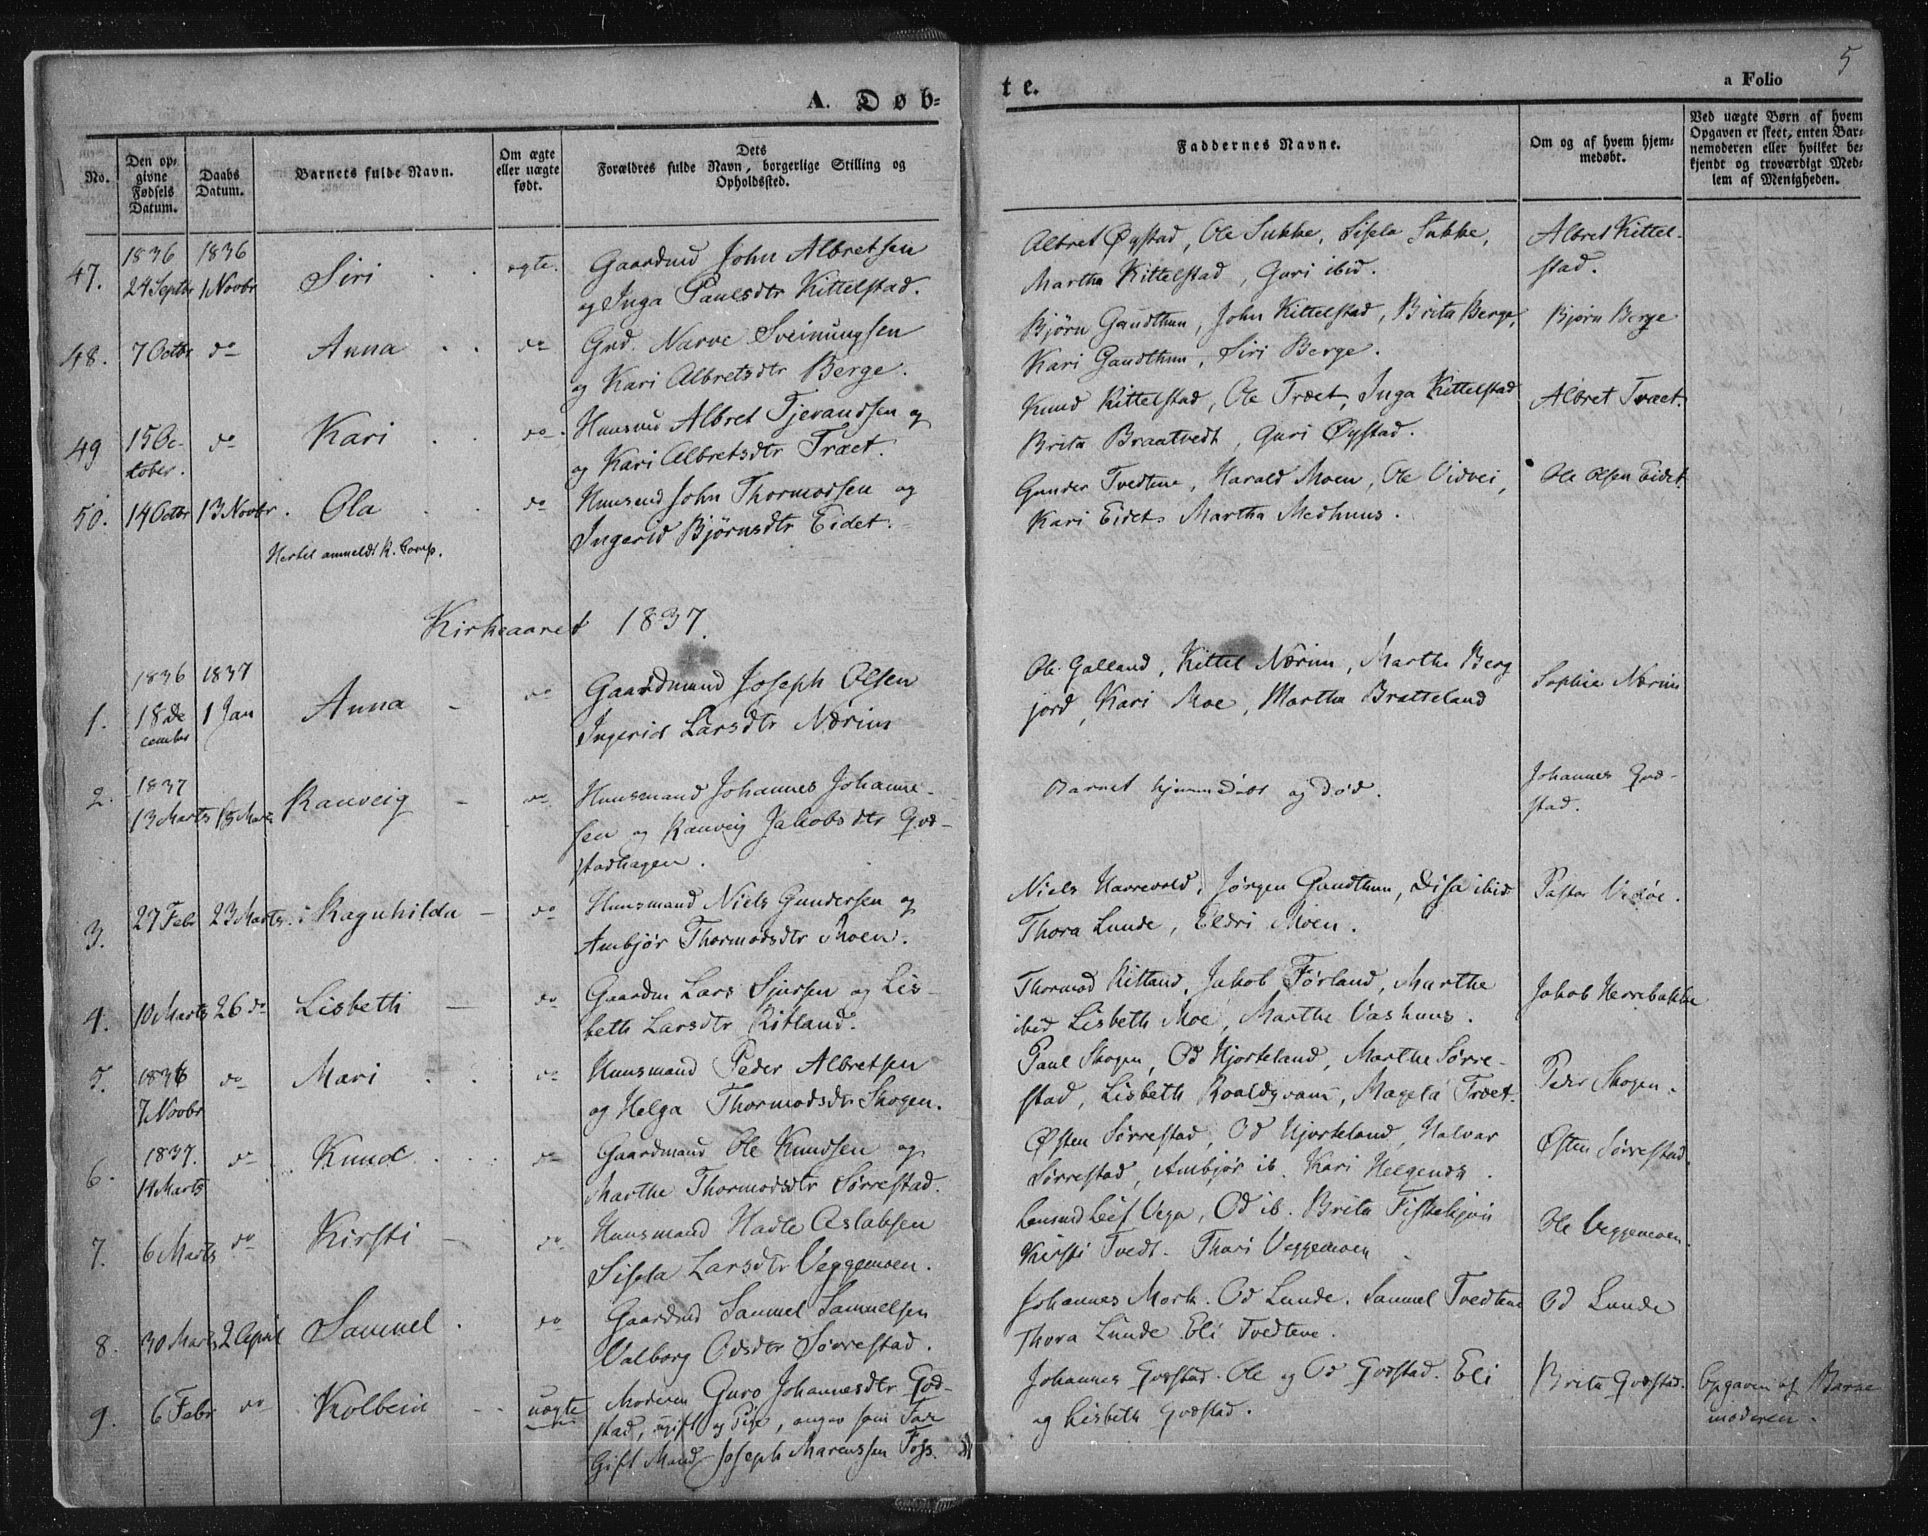 5
A. Døb= te. a Folio
No.
Den op= givne Fødsels Datum.
Daabs Datum.
Barnets fulde Navn.
Om ægte eller uægte født.
Dets Forældres fulde Navn, borgerlige Stilling og Opholdssted.
Faddernes Navne.
Om og af hvem hjem= medøbt.
Ved uægte Børn af hvem Opgaven er skeet, enten Bar= nemoderen eller hvilket be= kjendt og troværdigt Med= lem af Menigheden.
47. 1836 24 Septbr 1836 1 Novbr Siri ægte. Gaardmd John Albretsen
og Inga Paulsdtr Kittelstad.
Albret Øystad, Ole Sukke, Sisela Sukke,
Martha Kittelstad, Guri ibid.
Albret Kittel-
stad.
48. 7 Octbr do Anna do Grd. Narve Sveinungsen
og Kari Albretsdtr Berge.
Bjørn Gaudthun, John Kittelstad, Brita Berge,
Kari Gaudthun, Siri Berge.
Bjørn Berge
49 15 Oc-
tober. do Kari do. Huusmd Albret Tjerandsen og
og Kari Albretsdtr Træet.
Knud Kittelstad, Ole Træet, Inga Kittelstad
Brita Braatvedt, Guri Øystad.
Albret Træet.
50. 14 Octbr 13 Novbr. Ola do Huusmd John Thormodsen og
Ingerid Bjørnsdtr Eidet.
Hertil anmeldt K. Comp.
Gunder Tvedtene, Harald Moen, Ole Vidvei,
Kari Eidet, Martha Medhuus.
Ole Olsen Eidet
Kirkeaaret 1837.
1. 1836 18 De
cember 1837 1 Jan Anna do Gaardmand Joseph Olsen
Ingerid Larsdtr Nærim
Ole Galland, Kittel Nærim, Martha Berg
jord, Kari Moe, Martha Bratteland
Sophie Nærim
2. 1837
13 Marts 15 Marts Ranveig do Huusmand Johannes Johanne-
sen og Ranveig Jakobsdtr God-
stadhagen.
Barnet hjemmedøbt og død.
Johannes God-
stad.
3. 27 Febr 23 Marts Ragnhilda do Huusmand Niels Gundersen og
Ambjør Thormodsdtr Moen.
Niels Haarevold, Jørgen Gaudthun, Disa ibid
Thora Lunde, Eldri Moen.
Pastor Vedøe.
4. 10 Marts 26 do Lisbeth do Gaardm Lars Sjursen og Lis-
beth Larsdtr Ritland.
Thormod Ritland, Jakob Førland, Marthe
ibid Lisbeth Moe, Marthe Vashuus.
Jakob Herrebakke
5. 1836
7 Novbr do Mari do Huusmand Peder Albretsen
og Helga Thormodsdtr Skogen.
Paul Skogen, Od Hjorteland, Marthe Sørre-
stad, Lisbeth Roaldqvam, Magela Træet.
Peder Skogen.
6. 1837.
14 Marts do Knud do Gaardmand Ole Knudsen og
Marthe Thormodsdtr Sørrestad.
Østen Sørrestad, Od Hjorteland, Halvar
Sørrestad, Ambjør ib. Kari Helgenæs.
Østen Sørrestad.
7. 6 Marts do Kirsti do Huusmand Hadle Aslaksen
Sisela Larsdtr Veggemoen.
Leif Vega, Od ib. Brita Fiskekjøn
Kirsti Tvedt. Thori Veggemoen
Ole Veggemoen.
8. 30 Marts 2 April Samuel do Gaardmd Samuel Samuelsen
Valborg Odsdtr Sørrestad.
Johannes Mork. Od Lunde. Samuel Tvedtene
Thora Lunde Eli Tvedtene.
Od Lunde
9. 6 Febr do Kolbein uægte Moderen Guro Johannesdtr God-
stad, ugift og Pige, angav som Far
Gift Mand Joseph Marcussen Foss.
Johannes Godstad. Ole og Od Godstad. Eli
og Lisbeth Godstad.
Brita Godstad.
Opgaven af Barne
moderen.